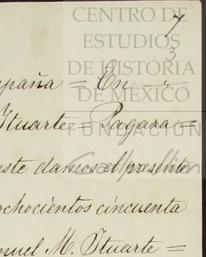 CENTRO DE
ESTUDIOS
DE HISTORIA
DE MÉXICO
FUNDACIÓN
7
3
mpaña = En
Ytuarte = Pagara =
este damos el presente
ochocientos cincuenta
nuel M. Ytuarte =